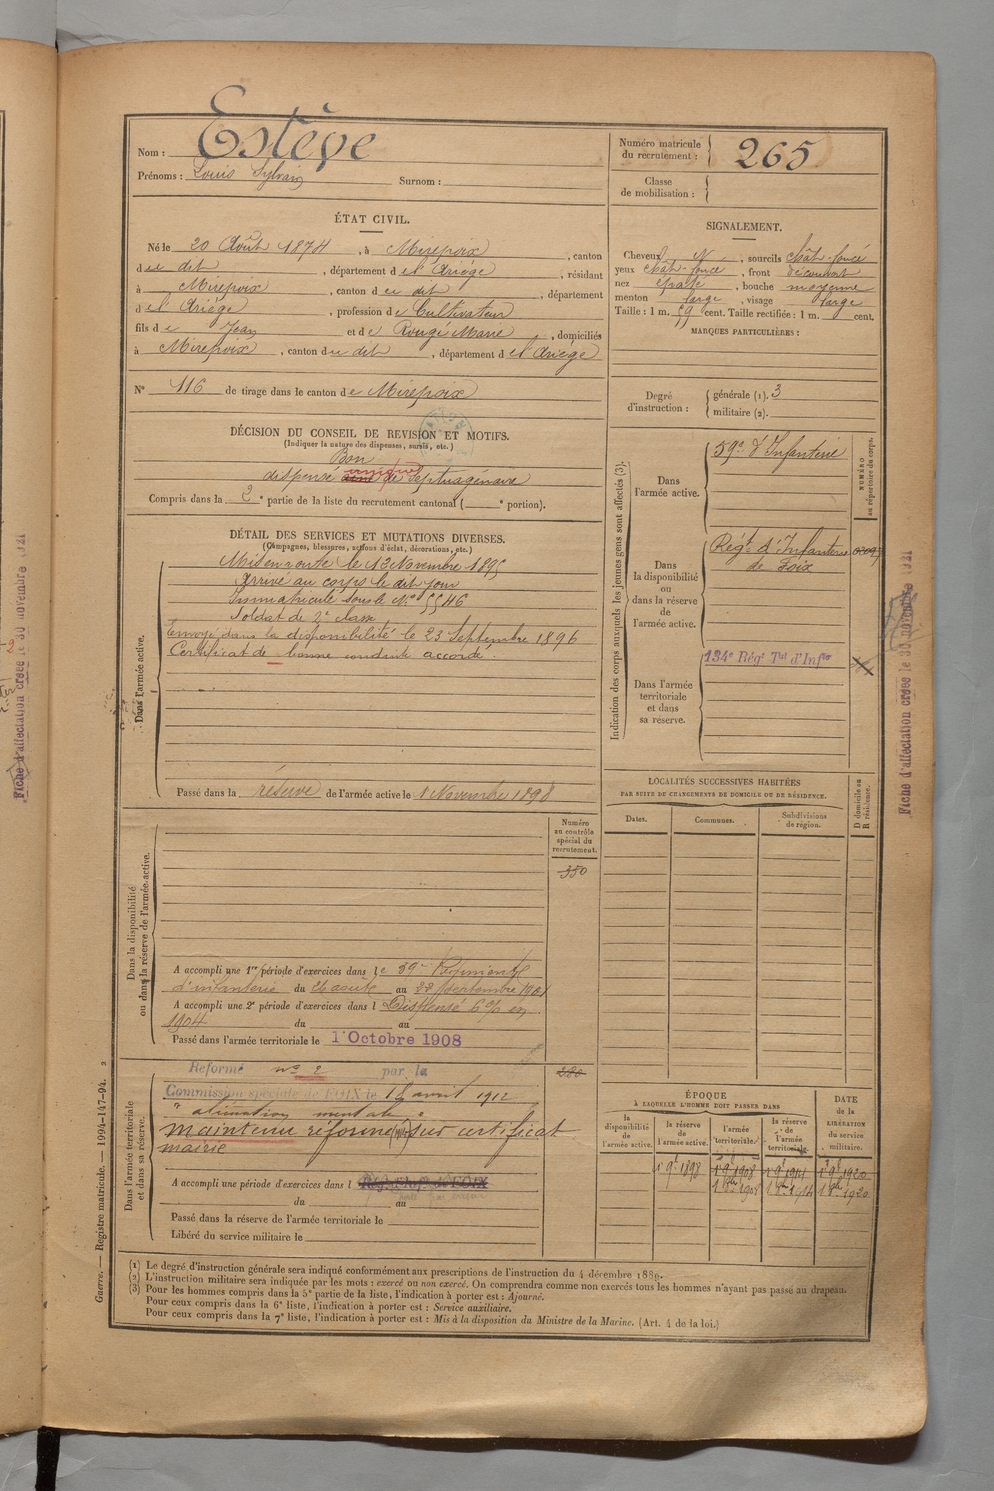 Nom : Estève
Prénoms : Louis Sylvain Surnom :
Numéro matricule du recrutement : 265
Classe de mobilisation :
ÉTAT CIVIL.
Né le 20 Août 1874, à Mirepoix, canton
du dit, département de l'Ariège, résidant
à Mirepoix, canton du dit, département
de l'Ariège, profession de Cultivateur
fils de Jean et de Rougé Marie, domiciliés
à Mirepoix, canton du dit, département de l'Ariège
N° 116 de tirage dans le canton de Mirepoix
SIGNALEMENT.
Cheveux N, sourcils chât-foncé
yeux chât-foncé, front découvert
nez épaté, bouche moyenne
menton large, visage large
Taille : 1 m. 59 cent. Taille rectifiée : 1 m. cent.
MARQUES PARTICULIÈRES :
Degré d'instruction : générale (1). 3
militaire (2).
DÉCISION DU CONSEIL DE REVISION ET MOTIFS.
(Indiquer la nature des dispenses, sursis, etc.)
Bon
dispensé unique de Septuagénaire
Compris dans la 2e partie de la liste du recrutement cantonal ( e portion).
DÉTAIL DES SERVICES ET MUTATIONS DIVERSES.
(Campagnes, blessures, actions d'éclat, décorations, etc.)
Dans l'armée active.
Mis en route le 13 Novembre 1895
Arrivé au corps le dit jour
Immatriculé sous le N° 5546
Soldat de 2e classe
Envoyé dans la disponibilité le 23 Septembre 1896
Certificat de bonne conduite accordé.
Passé dans la réserve de l'armée active le 1 Novembre 1898
Indication des corps auxquels les jeunes gens sont affectés (3).
NUMÉRO au répertoire du corps.
Dans l'armée active.
59e d'Infanterie
Dans la disponibilité ou dans la réserve de l'armée active.
Régt d'Infanterie
de Foix
Dans l'armée territoriale et dans sa réserve.
134e Régt Tial d'Infie
LOCALITÉS SUCCESSIVES HABITÉES
PAR SUITE DE CHANGEMENTS DE DOMICILE OU DE RÉSIDENCE.
Dates. Communes. Subdivisions de région. D domicile ou R résidence.
Dans la disponibilité ou dans la réserve de l'armée active.
Numéro au contrôle spécial du recrutement.
350
A accompli une 1re période d'exercices dans le 59e Régiment
d'infanterie du 26 août au 22 septembre 1901
A accompli une 2e période d'exercices dans l Dispensé 6% en
1904 du au
Passé dans l'armée territoriale le 1er Octobre 1908
Dans l'armée territoriale et dans sa réserve.
Réformé n° 2 par la
Commission spéciale de FOIX le avril 1912
"aliénation mentale"
maintenu réformé n° 2 sur certificat
mairie
A accompli une période d'exercices dans l
du au
Passé dans la réserve de l'armée territoriale le
Libéré du service militaire le
ÉPOQUE
À LAQUELLE L'HOMME DOIT PASSER DANS
la disponibilité de l'armée active. la réserve de l'armée active. l'armée territoriale. la réserve de l'armée territoriale. DATE de la LIBÉRATION du service militaire.
1 9e 1898 1 9e 1908 1 9e 1914 1 9e 1920
1 8bre 1908 1 8bre 1914 1 8bre 1920
(1) Le degré d'instruction générale sera indiqué conformément aux prescriptions de l'instruction du 4 décembre 1889.
(2) L'instruction militaire sera indiquée par les mots : exercé ou non exercé. On comprendra comme non exercés tous les hommes n'ayant pas passé au drapeau.
(3) Pour les hommes compris dans la 5e partie de la liste, l'indication à porter est : Ajourné.
Pour ceux compris dans la 6e liste, l'indication à porter est : Service auxiliaire.
Pour ceux compris dans la 7e liste, l'indication à porter est : Mis à la disposition du Ministre de la Marine. (Art. 4 de la loi.)
Guerre. — Registre matricule. — 1994-147-94. 2
Fiche d'affectation créée le 30 novembre 1921
Fiche d'affectation créée le 30 novembre 1921